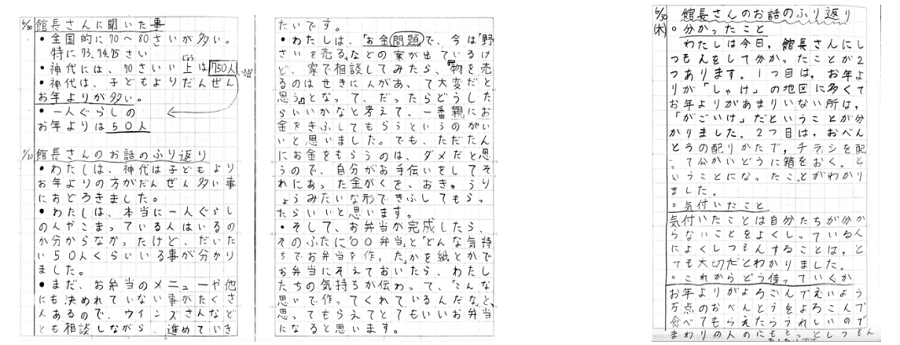 6/30 館長さんに聞いた事
・全国的に70～80さいが多い。
特に73.74.75さい
・神代には、70さいい上は750人
・神代は、子どもよりだんぜん
お年よりが多い。
・一人ぐらしの
お年よりは50人
館長さんのお話のふり返り
・わたしは、神代は子どもより
お年よりの方がだんぜん多い事
におどろきました。
・わたしは、本当に一人ぐらし
の人やこまっている人はいるの
か分からなかったけど、だいた
い50人くらいいる事が分かり
ました。
・まだ、お弁当のメニューや他
にも決めれていない事がたくさ
んあるので、ウインズさんなど
とも相談しながら、進めていき
たいです。
・わたしは、「お金問題」で、今は「野
さいを売る」などの案が出ているけ
ど、家で相談してみたら、「物を売
るのはせきにんがあって大変だと
思う」となって、だったらどうした
らいいかなと考えて、一番親にお
金をきふしてもらうというのがい
いと思いました。でも、ただたん
にお金をもらうのは、ダメだと思
うので、自分がお手伝いをしてそ
れにあった金がくを、おきゅうり
ょうみたいな形できふしてもらっ
たらいいと思います。
・そして、お弁当が完成したら、
そのふたに「〇〇弁当」と「どんな気持
ちでお弁当を作ったか」を紙とかで
お弁当にそえておいたら、わたし
たちの気持ちが伝わって、「こんな
思いで作ってくれているんだな」と、
思ってもらえてとてもいいお弁当
になると思います。
6/30 館長さんのお話のふり返り
(木) ・分かったこと
わたしは今日、館長さんにし
つもんをして分かったことが2
つあります。1つ目は、お年よ
りが「しゃけ」の地区に多くて
お年よりがあまりいない所は、
「がごいけ」だということが分
かりました。2つ目は、おべん
とうの配りかたで、チラシを配
って公かいどうに箱をおく。と
いうことになったことがわかり
ました。
・気付いたこと
気付いたことは自分たちが分か
らないことをよくしっている人
によくしつもんすることは、と
ても大切だとわかりました。
・これからどう使っていくか
お年よりがよろこんでえいよう
万点のおべんとうをよろこんで
食べてもらえたらうれしいので
まわりの人にももっとしつもん